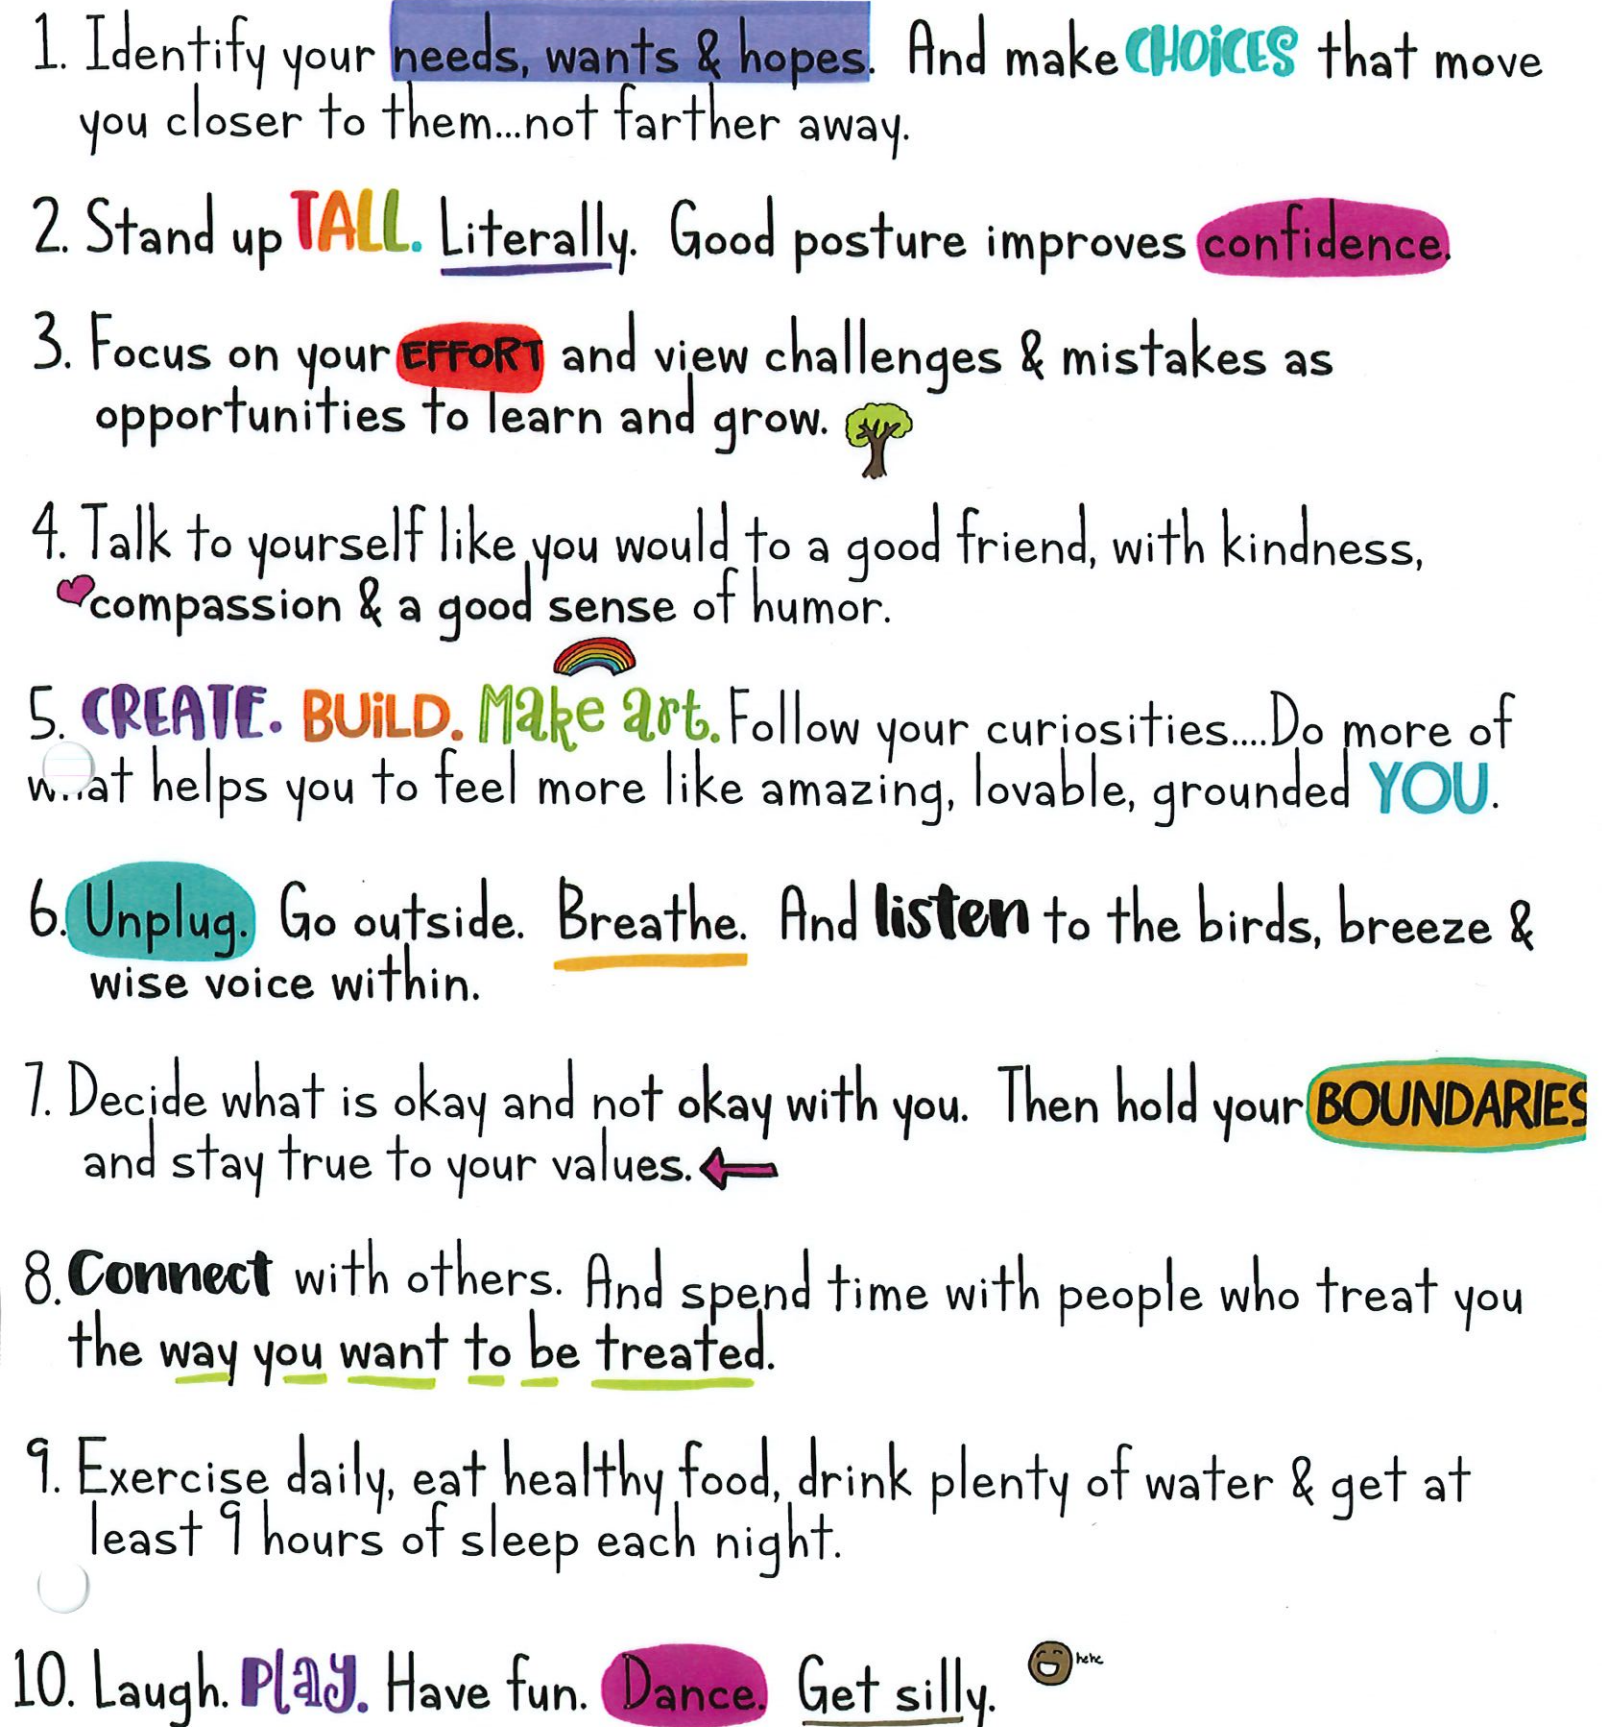 1. Identify your needs, wants & hopes. And make CHOiCES that move
you closer to them...not farther away.
2. Stand up TALL. Literally. Good posture improves confidence.
3. Focus on your EFFORT and view challenges & mistakes as
opportunities to learn and grow.
4. Talk to yourself like you would to a good friend, with kindness,
compassion & a good sense of humor.
5. CREATE. BUiLD. Make art. Follow your curiosities....Do more of
what helps you to feel more like amazing, lovable, grounded YOU.
6. Unplug. Go outside. Breathe. And listen to the birds, breeze &
wise voice within.
7. Decide what is okay and not okay with you. Then hold your BOUNDARIES
and stay true to your values.
8. Connect with others. And spend time with people who treat you
the way you want to be treated.
9. Exercise daily, eat healthy food, drink plenty of water & get at
least 9 hours of sleep each night.
10. Laugh. Play. Have fun. Dance. Get silly. hehe